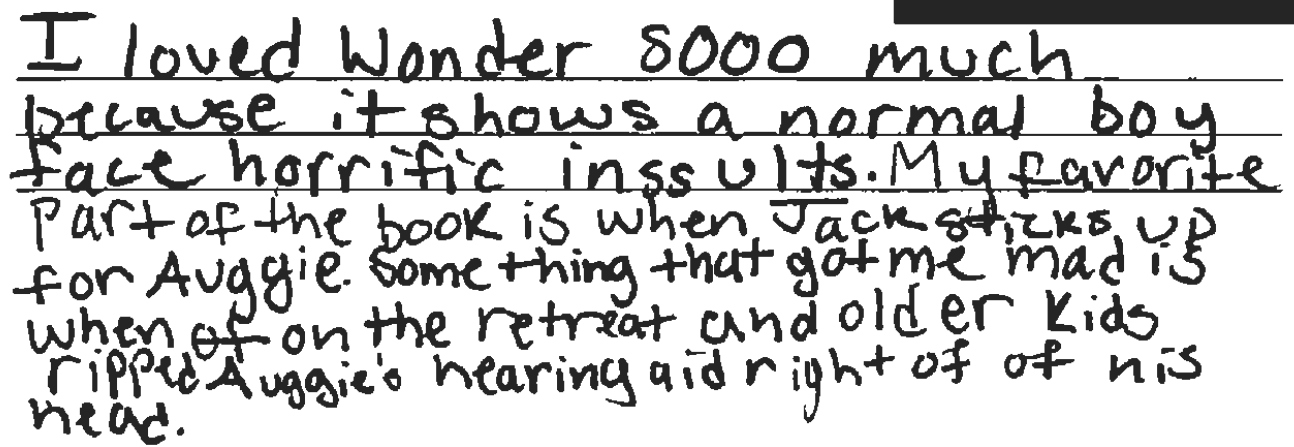 I loved Wonder sooo much
because it shows a normal boy
face horrific inssults. My favorite
part of the book is when Jack sticks up
for Auggie. Something that got me mad is
when of on the retreat and older kids
ripped Auggie's hearing aid right of of his
head.